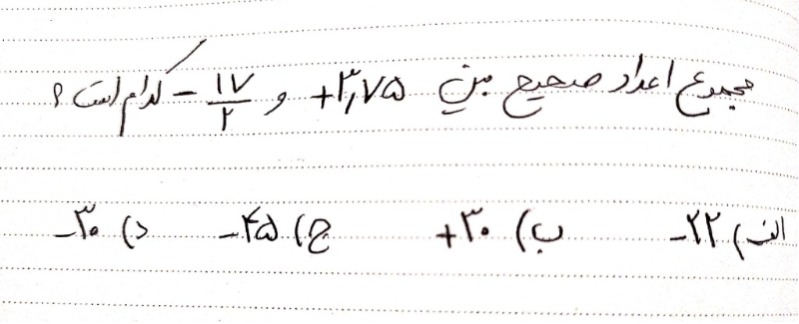 مجموع اعداد صحیح بین +۳,۷۵ و ۱۷/۲ - کدام است ؟
الف) -۲۲ ب) +۳۰ ج) -۴۵ د) -۳۰